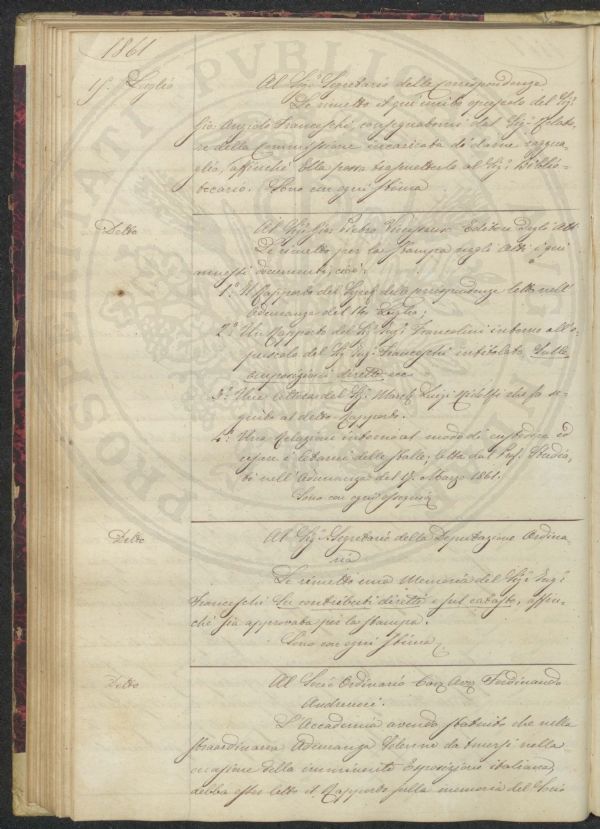 1861
15. Luglio
Al Sig.r Segretario delle Corrispondenze
Le rimetto il qui unito opuscolo del Sig.r
Gio. Angiolo Franceschi, consegnatomi dal Sig.r Relato-
re della Commissione incaricata di darne raggua-
glio, affinché Ella possa trasmetterlo al Sig.r Biblio-
tecario. Sono con ogni stima
Detto
Al Sig.r Pietro Editore degli Atti
Le rimetto per la stampa negli Atti i qui
annessi documenti, cioè:
1.o Il Rapporto del Segret. delle corrispondenze letto nell'
Adunanza del 14 Luglio;
2.o Un Rapporto del Sig.r Ing.r Francolini intorno all'o-
puscolo del Sig. Ing.r Franceschi intitolato Sulle
imposizioni dirette ec.
3.o Una lettera del Sig.r March. Luigi Ridolfi che fa se-
guito al detto Rapporto.
4.o Una Relazione intorno al modo di custodire ed
essere i letami delle stalle, letta dal Prof. Studia-
ti nell'Adunanza del 17 Marzo 1861.
Sono con ogni ossequio
Detto
Al Sig.r Segretario della Deputazione Ordina-
ria
Le rimetto una Memoria del Sig.r Ing.r
Franceschi Sui contributi diretti e sul catasto, affin-
ché sia approvata per la stampa.
Sono con ogni stima
Detto
Al Socio Ordinario Cav. Avv. Ferdinando
Andreucci.
L'Accademia avendo statuito che nella
straordinaria Adunanza Solenne da tenersi nella
occasione della imminente Esposizione italiana,
debba esser letto il Rapporto sulla memoria del Socio
PROSPERITATI PUBLICAE